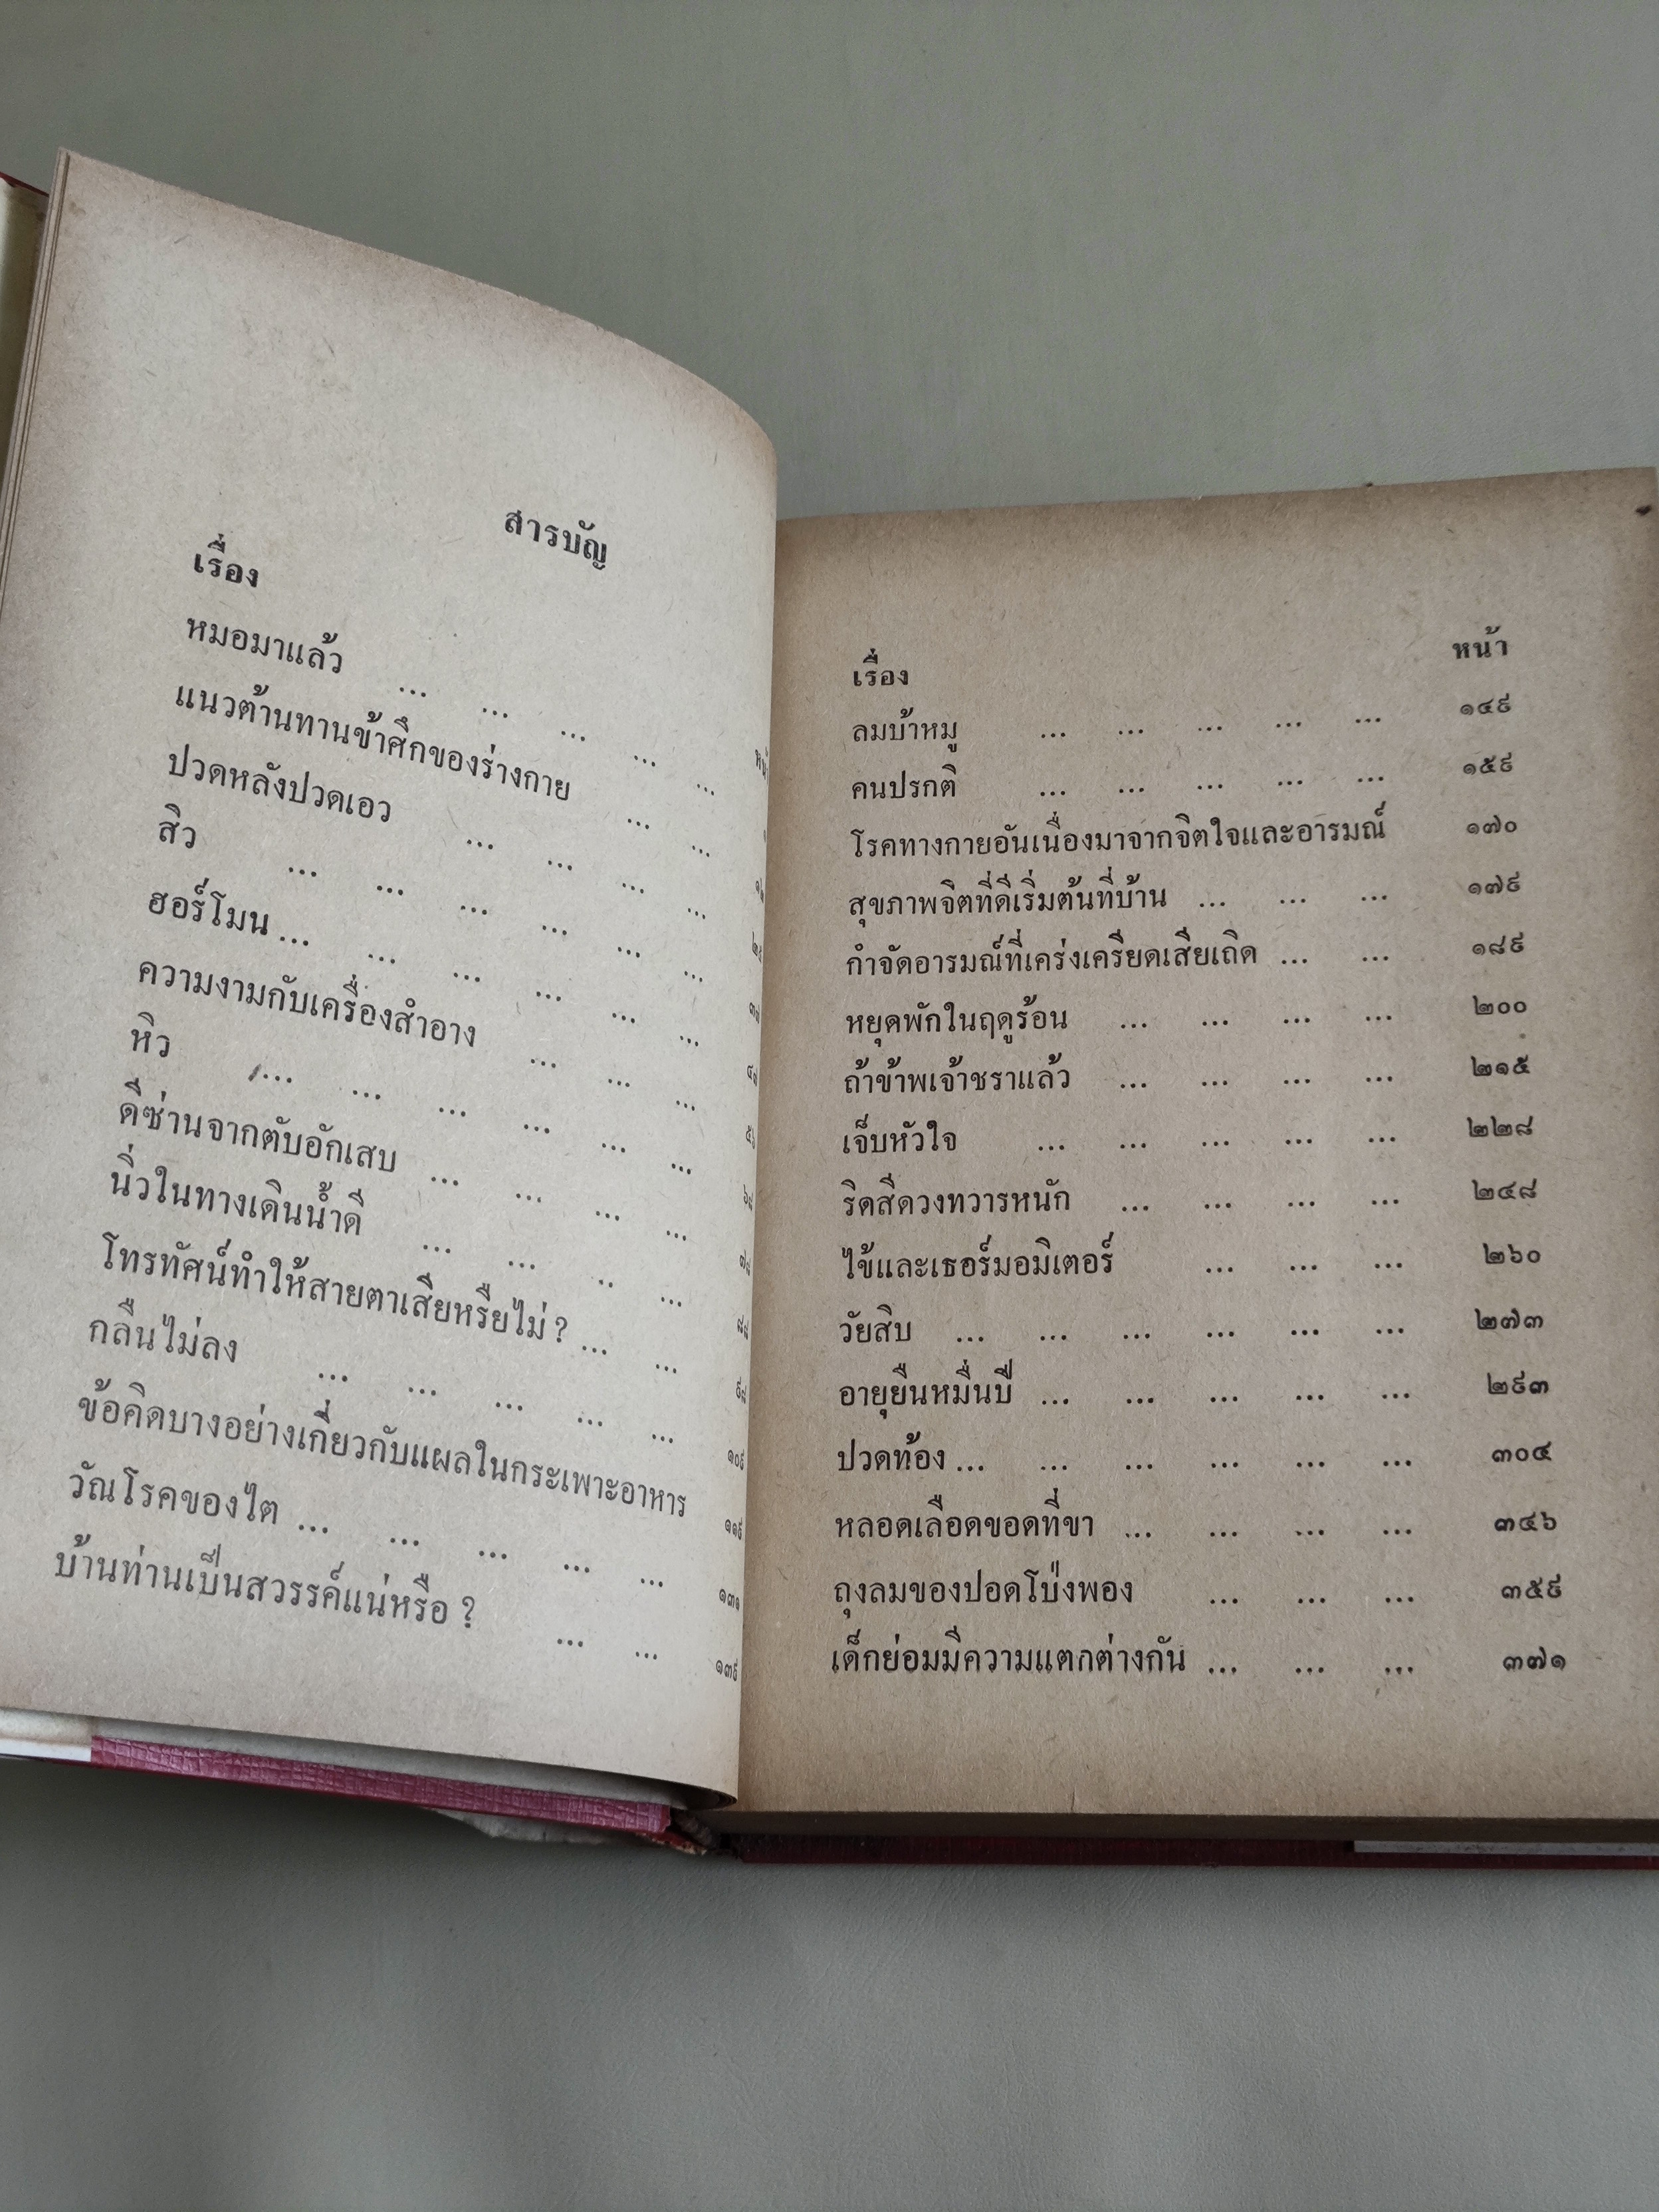 สารบัญ
เรื่อง
หมอมาแล้ว ... ... ... ... ...
แนวต้านทานข้าศึกของร่างกาย ... ...
ปวดหลังปวดเอว ... ... ... ...
สิว ... ... ... ... ... ...
ฮอร์โมน ... ... ... ... ... ...
ความงามกับเครื่องสำอาง ... ... ...
หิว ... ... ... ... ... ...
ดีซ่านจากตับอักเสบ ... ... ... ...
นิ่วในทางเดินน้ำดี ... ... ... ...
โทรทัศน์ทำให้สายตาเสียหรือไม่ ? ... ...
กลืนไม่ลง ... ... ... ... ... ๑๐๙
ข้อคิดบางอย่างเกี่ยวกับแผลในกระเพาะอาหาร ๑๑๙
วัณโรคของไต ... ... ... ... ... ๑๓๑
บ้านท่านเป็นสวรรค์แน่หรือ ? ... ... ๑๓๙
เรื่อง หน้า
ลมบ้าหมู ... ... ... ... ... ๑๔๙
คนปรกติ ... ... ... ... ... ๑๕๙
โรคทางกายอันเนื่องมาจากจิตใจและอารมณ์ ๑๗๐
สุขภาพจิตที่ดีเริ่มต้นที่บ้าน ... ... ... ๑๗๙
กำจัดอารมณ์ที่เคร่งเครียดเสียเถิด ... ... ๑๘๙
หยุดพักในฤดูร้อน ... ... ... ... ๒๐๐
ถ้าข้าพเจ้าชราแล้ว ... ... ... ... ๒๑๕
เจ็บหัวใจ ... ... ... ... ... ๒๒๘
ริดสีดวงทวารหนัก ... ... ... ... ๒๔๘
ไข้และเธอร์มอมิเตอร์ ... ... ... ๒๖๐
วัยสิบ ... ... ... ... ... ... ๒๗๓
อายุยืนหมื่นปี ... ... ... ... ... ๒๙๓
ปวดท้อง ... ... ... ... ... ... ๓๐๔
หลอดเลือดขอดที่ขา ... ... ... ... ๓๔๖
ถุงลมของปอดโป่งพอง ... ... ... ๓๕๙
เด็กย่อมมีความแตกต่างกัน ... ... ... ๓๗๑